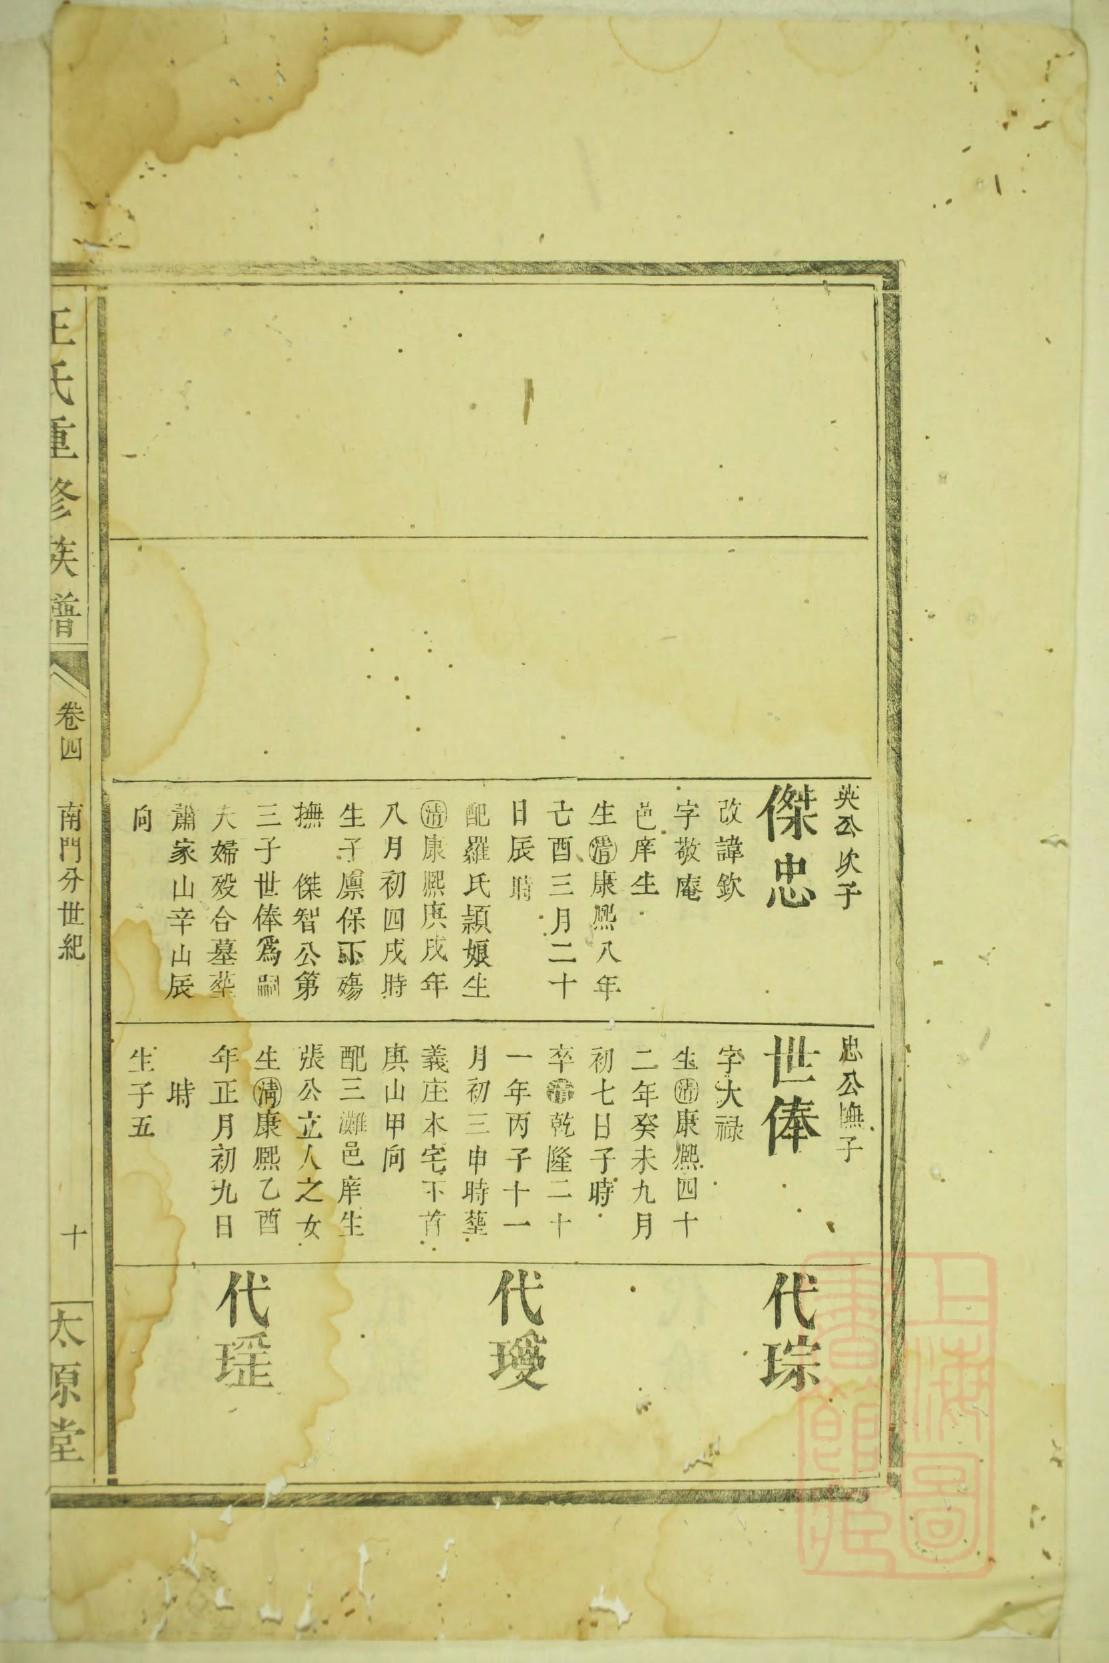 英公次子
傑忠
改諱欽
字敬庵
邑庠生
生清康熙八年
己酉三月二十
日辰時
配羅氏頴娘生
清康熙庚戌年
八月初四戌時
生子廪保不殤
撫 傑智公第
三子世俸爲嗣
夫婦歿合墓塟
蕭家山辛山辰
向
忠公撫子
世俸
字大禄
生清康熙四十
二年癸未九月
初七日子時
卒清乾隆二十
一年丙子十一
月初三申時塟
義庄本宅下首
庚山甲向
配三灘邑庠生
張公立人之女
生清康熙乙酉
年正月初九日
時
生子五
代琮
代璦
代瑶
王氏重修族譜
卷四 南門分世紀 十
太原堂
上海圖書館藏